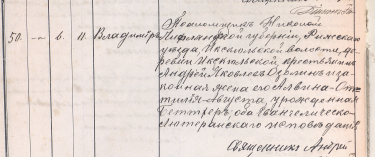 50. -- 6. 11. Владиміръ
Лифляндской губерніи, Рижскаго
уѣзда, Икскюльской волости, де-
ревни Икскюльской, крестьянинъ
Андрей Яковлевъ Озолинъ и за-
конная жена его Альвина-От-
тилія-Августа, урожденная
оба Евангелическо-
Лютеранскаго исповѣданія.
Священникъ Андрей